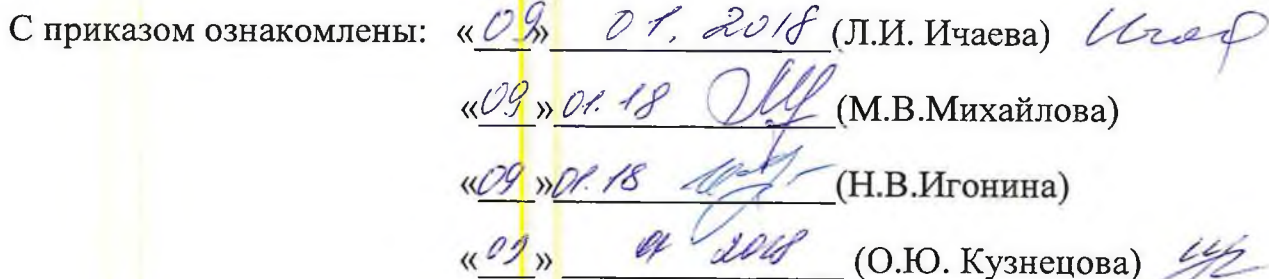 С приказом ознакомлены: «09» 01. 2018 (Л.И. Ичаева)
«09» 01.18 (М.В.Михайлова)
«09» 01.18 (Н.В.Игонина)
«09» 01 2018 (О.Ю. Кузнецова)